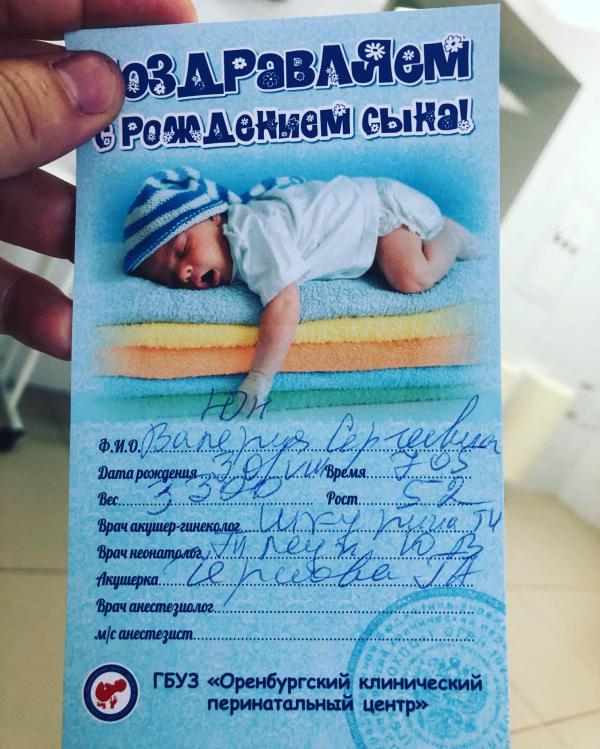 ПОЗДРАВЛЯЕМ
С РОЖДЕНИЕМ СЫНА!
Юн
Ф.И.О. Валерия Сергеевна
Дата рождения 30/VIII Время 7 05
Вес 3300 Рост 52
Врач акушер-гинеколог
Врач неонатолог
Акушерка
Врач анестезиолог
м/с анестезист
ГБУЗ «Оренбургский клинический
перинатальный центр»